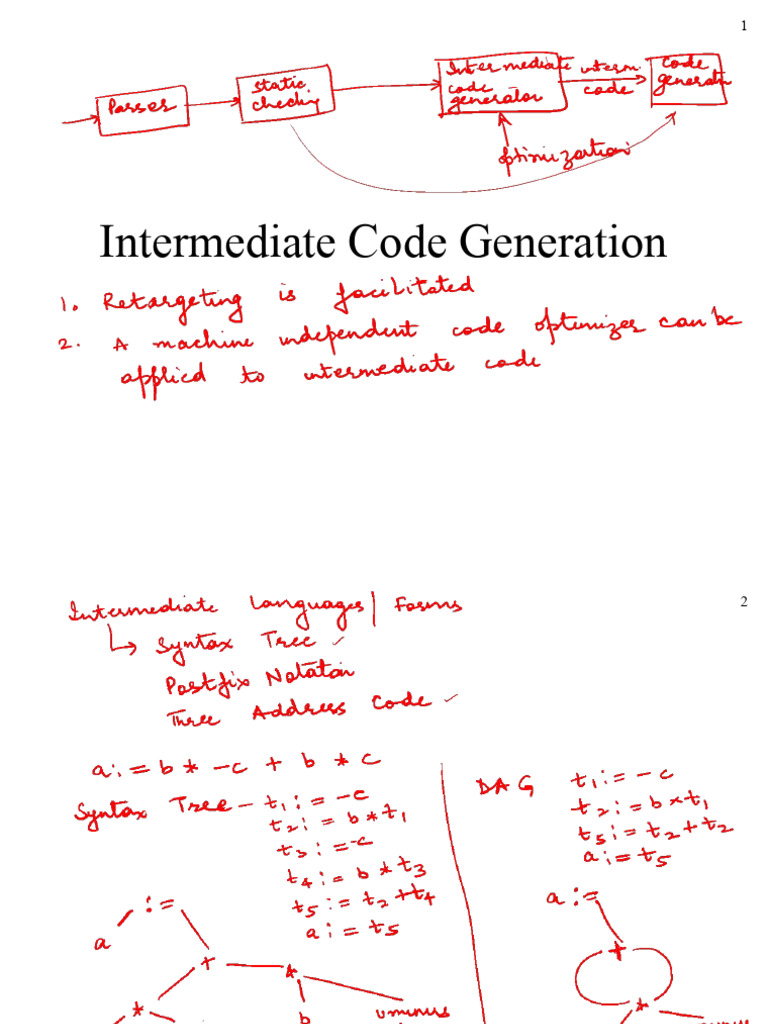 1
Parser
static
checking
Intermediate
code
generator
interm.
code
code
generatn
optimization
Intermediate Code Generation
1. Retargeting is facilitated
2. A machine independent code optimizer can be
applied to intermediate code
2
Intermediate Languages | Forms
Syntax Tree
Postfix Notation
Three Address Code
a := b * -c + b * c
Syntax Tree - t1 := -c
t2 := b * t1
t3 := -c
t4 := b * t3
t5 := t2 + t4
a := t5
DAG t1 := -c
t2 := b * t1
t5 := t2 + t2
a := t5
:=
a
+
*
*
b
uminus
a :=
+
*